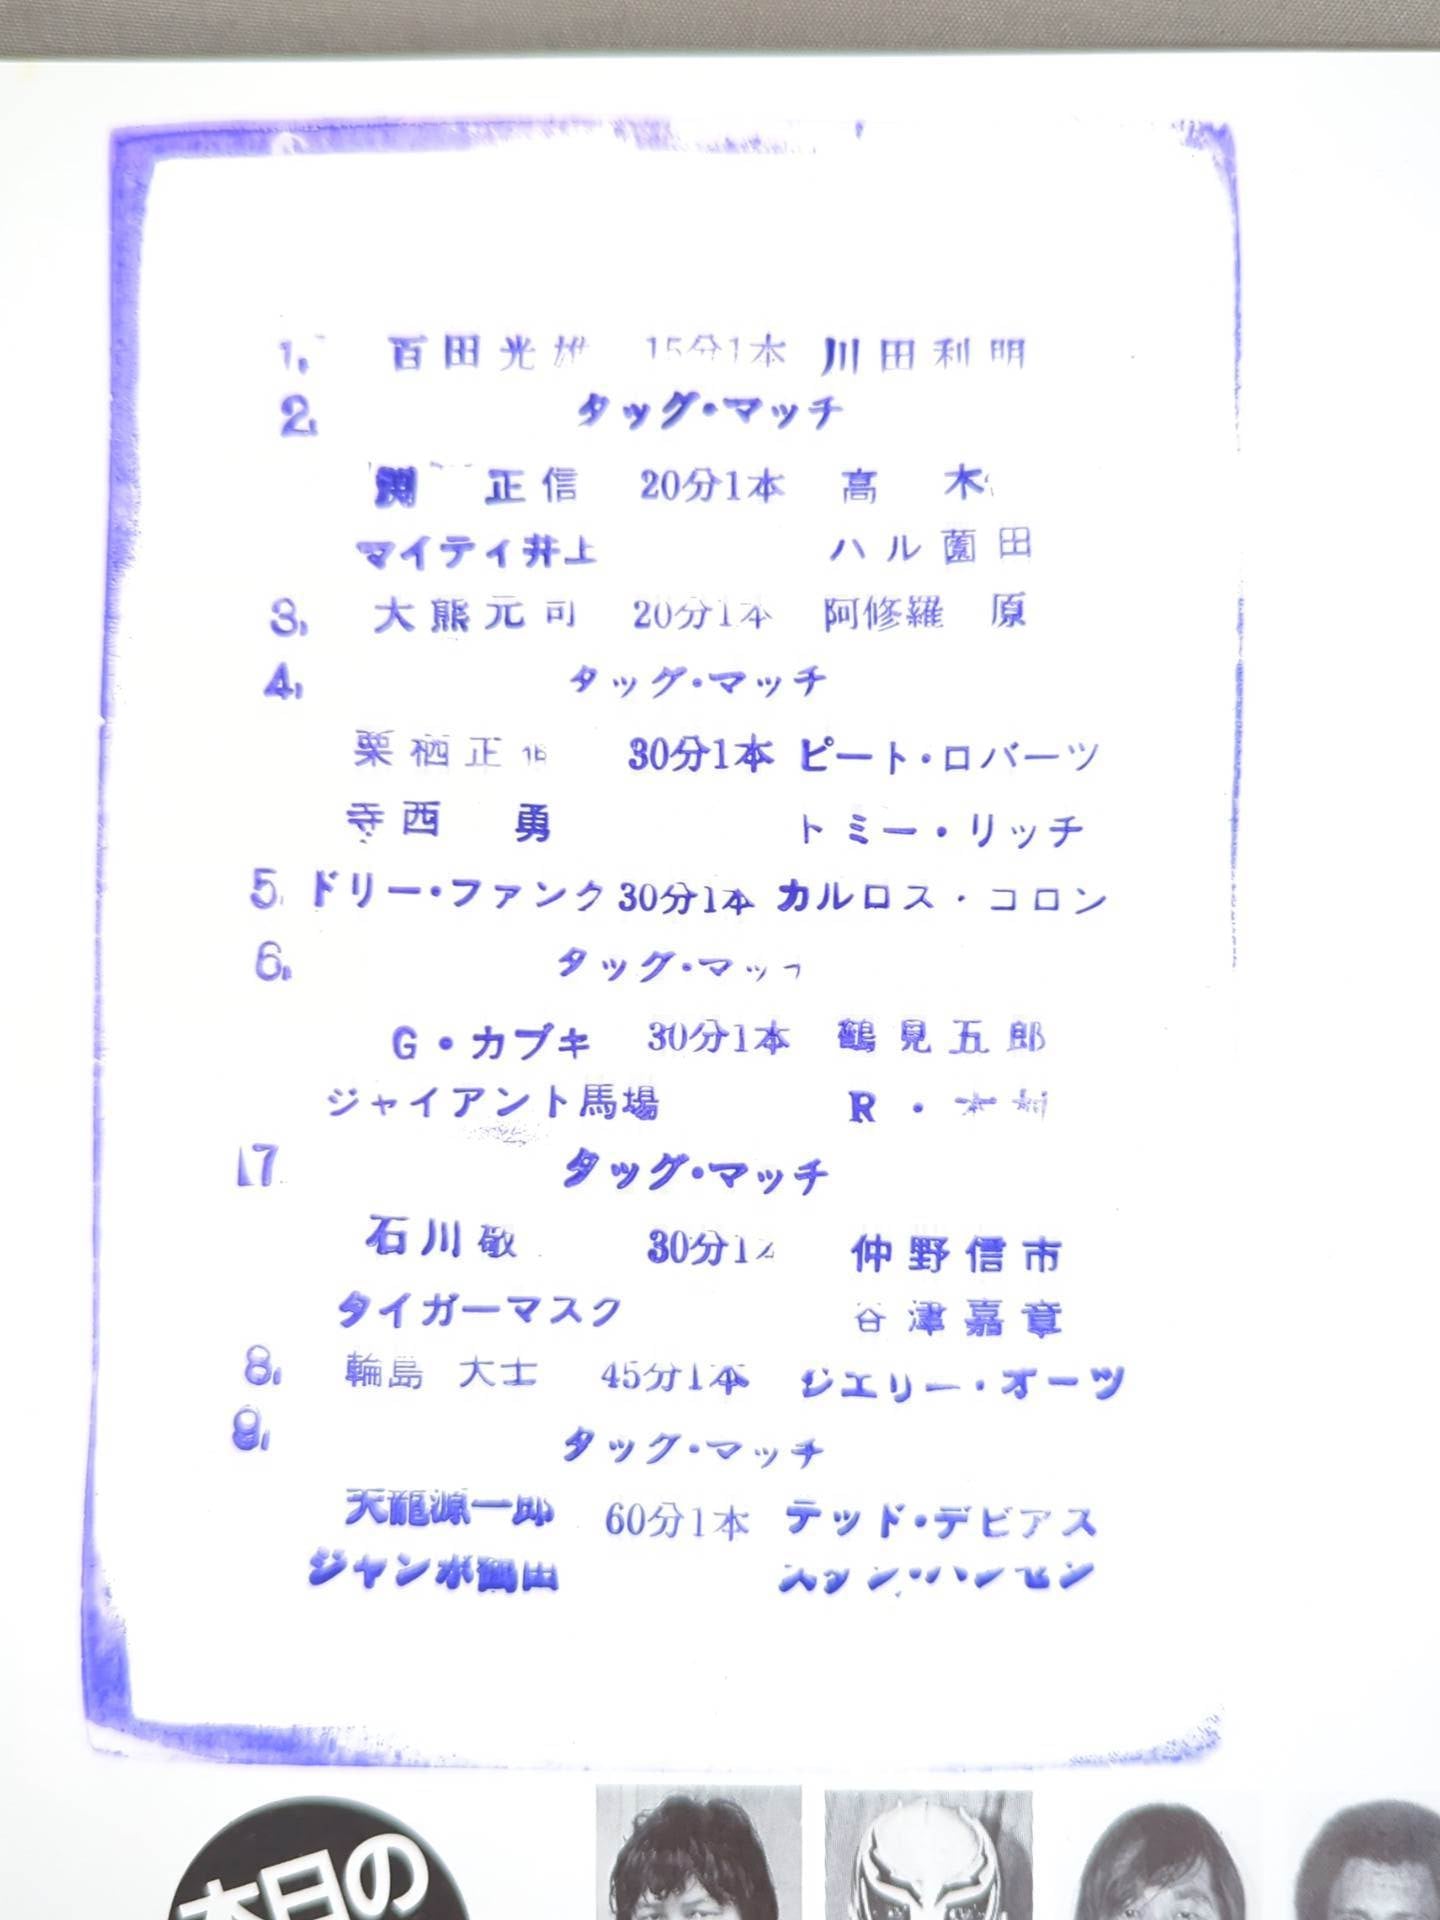 1. 百田光雄 15分1本 川田利明
2. タッグ・マッチ
渕 正信 20分1本 高木
マイティ井上 ハル薗田
3. 大熊元司 20分1本 阿修羅 原
4. タッグ・マッチ
栗栖正伸 30分1本 ピート・ロバーツ
寺西 勇 トミー・リッチ
5. ドリー・ファンク 30分1本 カルロス・コロン
6. タッグ・マッチ
G・カブキ 30分1本 鶴見五郎
ジャイアント馬場 R・木村
7 タッグ・マッチ
石川敬 30分1本 仲野信市
タイガーマスク 谷津嘉章
8. 輪島 大士 45分1本 ジェリー・オーツ
9. タッグ・マッチ
天龍源一郎 60分1本 テッド・デビアス
ジャンボ鶴田 スタン・ハンセン
本日の